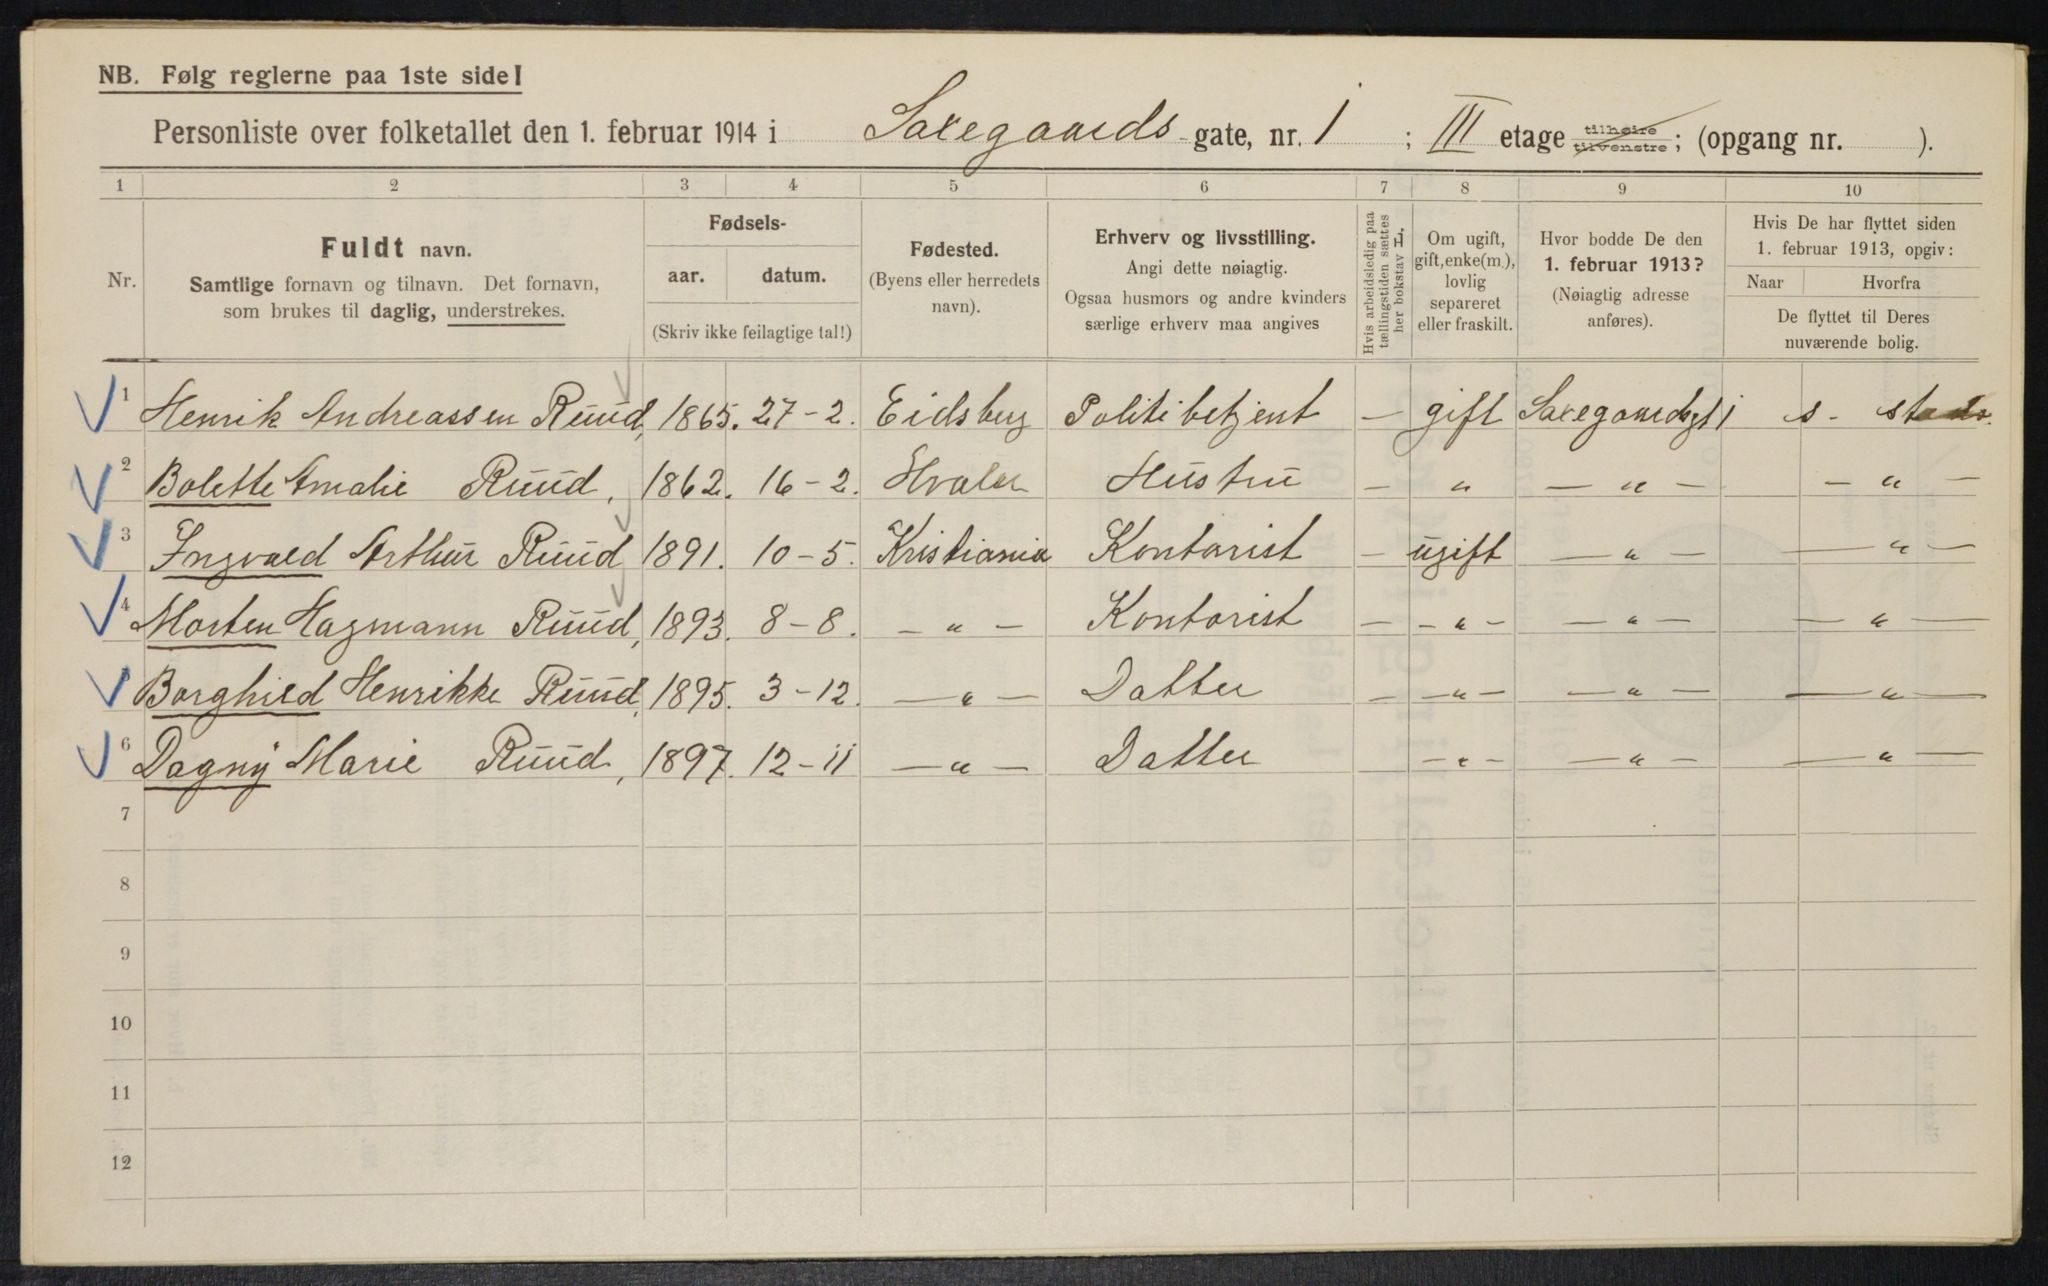 NB. Følg reglerne paa 1ste side!
Personliste over folketallet den 1. februar 1914 i Saxegaards gate, nr. 1 ; III etage tilhøire tilvenstre; (opgang nr. ).
1 2 3 4 5 6 7 8 9 10
Nr.
Fuldt navn.
Samtlige fornavn og tilnavn. Det fornavn,
som brukes til daglig, understrekes.
Fødsels-
aar. datum.
(Skriv ikke feilagtige tal!)
Fødested.
(Byens eller herredets
navn).
Erhverv og livsstilling.
Angi dette nøiagtig.
Ogsaa husmors og andre kvinders
særlige erhverv maa angives
Hvis arbeidsledig paa
tællingstiden sættes
her bokstav H,
Om ugift,
gift, enke(m.),
lovlig
separeret
eller fraskilt.
Hvor bodde De den
1. februar 1913?
(Nøiagtig adresse
anføres).
Hvis De har flyttet siden
1. februar 1913, opgiv:
Naar Hvorfra
De flyttet til Deres
nuværende bolig.
1 Henrik Andreassen Ruud, 1865. 27-2. Eidsberg Politibetjent - gift Saxegaardsgt 1 s. steds.
2 Bolette Amalie Ruud, 1862. 16-2. Hvaler Hustru - " - " - - " -
3 Ingvald Arthur Ruud 1891. 10-5. Kristiania Kontorist - ugift - " - - " -
4 Morten Hagmann Ruud, 1893. 8-8. - " - Kontorist - - " - - " - - " -
5 Borghild Henrikke Ruud, 1895. 3-12. - " - Datter - - " - - " - - " -
6 Dagny Marie Ruud, 1897. 12-11 - " - Datter - " - - " - - " -
7
8
9
10
11
12